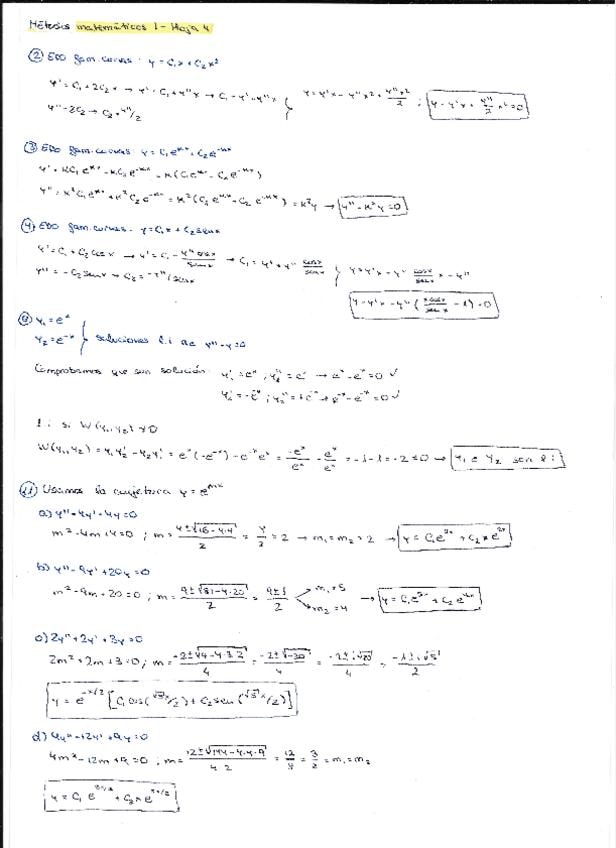 Métodos matemáticos 1 - Hoja 4
② EDO fam. curvas: y = C₁x + C₂x²
y' = C₁ + 2C₂x → y' = C₁ + y''x → C₁ = y' - y''x
y'' = 2C₂ → C₂ = y''/2
y = y'x - y''x² + y''x²/2 ; y - y'x + y''/2 x² = 0
③ EDO fam. curvas: y = C₁e^{kx} + C₂e^{-kx}
y' = kC₁e^{kx} - kC₂e^{-kx} = k(C₁e^{kx} - C₂e^{-kx})
y'' = k²C₁e^{kx} + k²C₂e^{-kx} = k²(C₁e^{kx} + C₂e^{-kx}) = k²y → y'' - k²y = 0
④ EDO fam. curvas: y = C₁x + C₂senx
y' = C₁ + C₂cosx → y' = C₁ - y''cosx/senx → C₁ = y' + y'' cosx/senx
y'' = -C₂senx → C₂ = -y''/senx
y = y'x - y'' cosx/senx x - y''
y - y'x - y''(xcosx/senx - 1) = 0
y₁ = eˣ
y₂ = e⁻ˣ } soluciones l.i de y'' - y = 0
Comprobamos que son solución: y₁' = eˣ ; y₁'' = eˣ → eˣ - eˣ = 0 ✓
y₂' = -e⁻ˣ ; y₂'' = +e⁻ˣ → e⁻ˣ - e⁻ˣ = 0 ✓
l.i si W(y₁,y₂) ≠ 0
W(y₁,y₂) = y₁y₂' - y₂y₁' = eˣ(-e⁻ˣ) - e⁻ˣeˣ = -eˣ/eˣ - eˣ/eˣ = -1 - 1 = -2 ≠ 0 → y₁ e y₂ son l.i
⑪ Usamos la conjetura y = e^{mx}
a) y'' - 4y' + 4y = 0
m² - 4m + 4 = 0 ; m = 4±√16-4·4/2 = 4/2 = 2 → m₁ = m₂ = 2 → y = C₁e^{2x} + C₂xe^{2x}
b) y'' - 9y' + 20y = 0
m² - 9m + 20 = 0 ; m = 9±√81-4·20/2 = 9±1/2 m₁ = 5 m₂ = 4 → y = C₁e^{5x} + C₂e^{4x}
c) 2y'' + 2y' + 3y = 0
2m² + 2m + 3 = 0 ; m = -2±√4-4·3·2/4 = -2±√-20/4 = -2±i√20/4 = -1±i√5/2
y = e^{-x/2}[C₁cos(√5x/2) + C₂sen(√5x/2)]
d) 4y'' - 12y' + 9y = 0
4m² - 12m + 9 = 0 ; m = 12±√144-4·4·9/4·2 = 12/8 = 3/2 = m₁ = m₂
y = C₁e^{3x/2} + C₂xe^{3x/2}